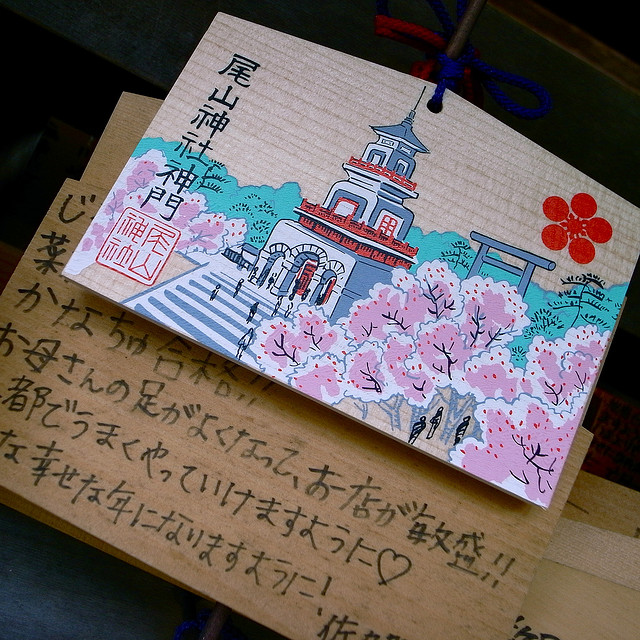 尾山神社神門
尾山
神社
じ
薬
かなちゅ合格!!
お母さんの足がよくなって、お店が敏盛!!
都でうまくやっていけますように♡
な幸せな年になりますように!
佐